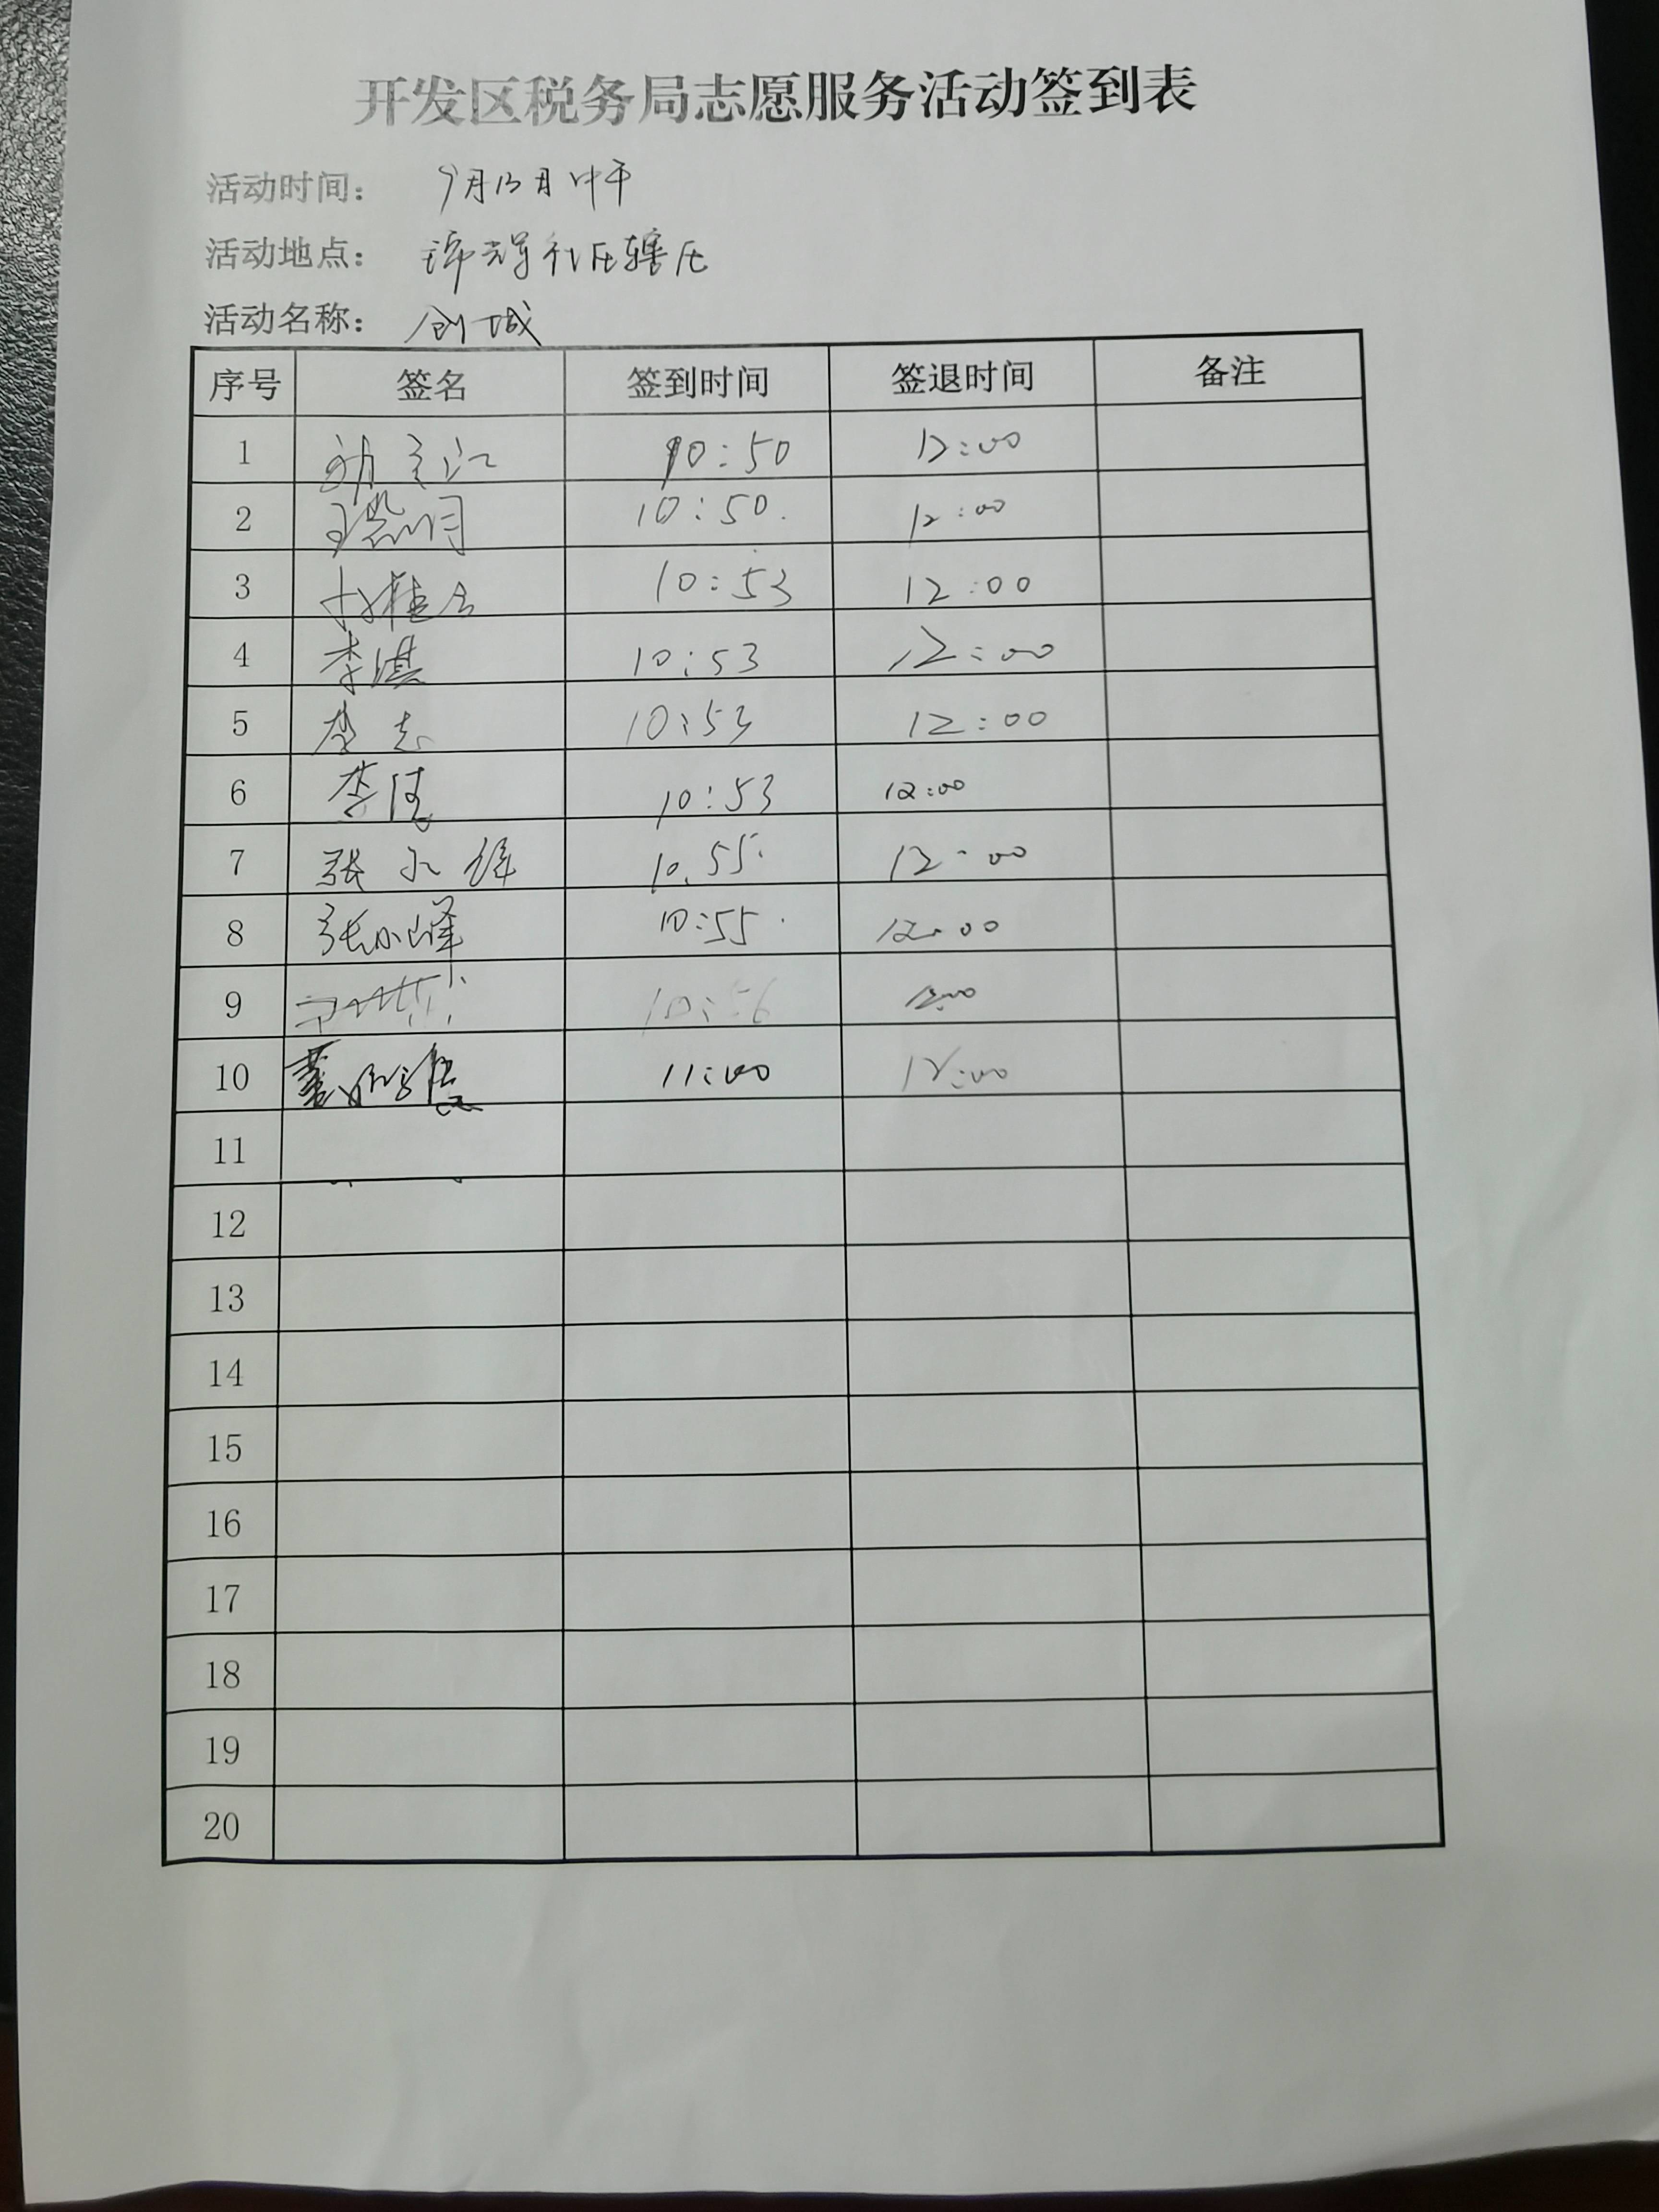 开发区税务局志愿服务活动签到表
活动时间: 9月13日中午
活动地点: 社区辖区
活动名称: 创城
序号 签名 签到时间 签退时间 备注
1 10:50 12:00
2 10:50 12:00
3 10:53 12:00
4 李淇 10:53 12:00
5 李志 10:53 12:00
6 李 10:53 12:00
7 张 10:55 12:00
8 张小峰 10:55 12:00
9 10:56 12:00
10 11:00 12:00
11
12
13
14
15
16
17
18
19
20